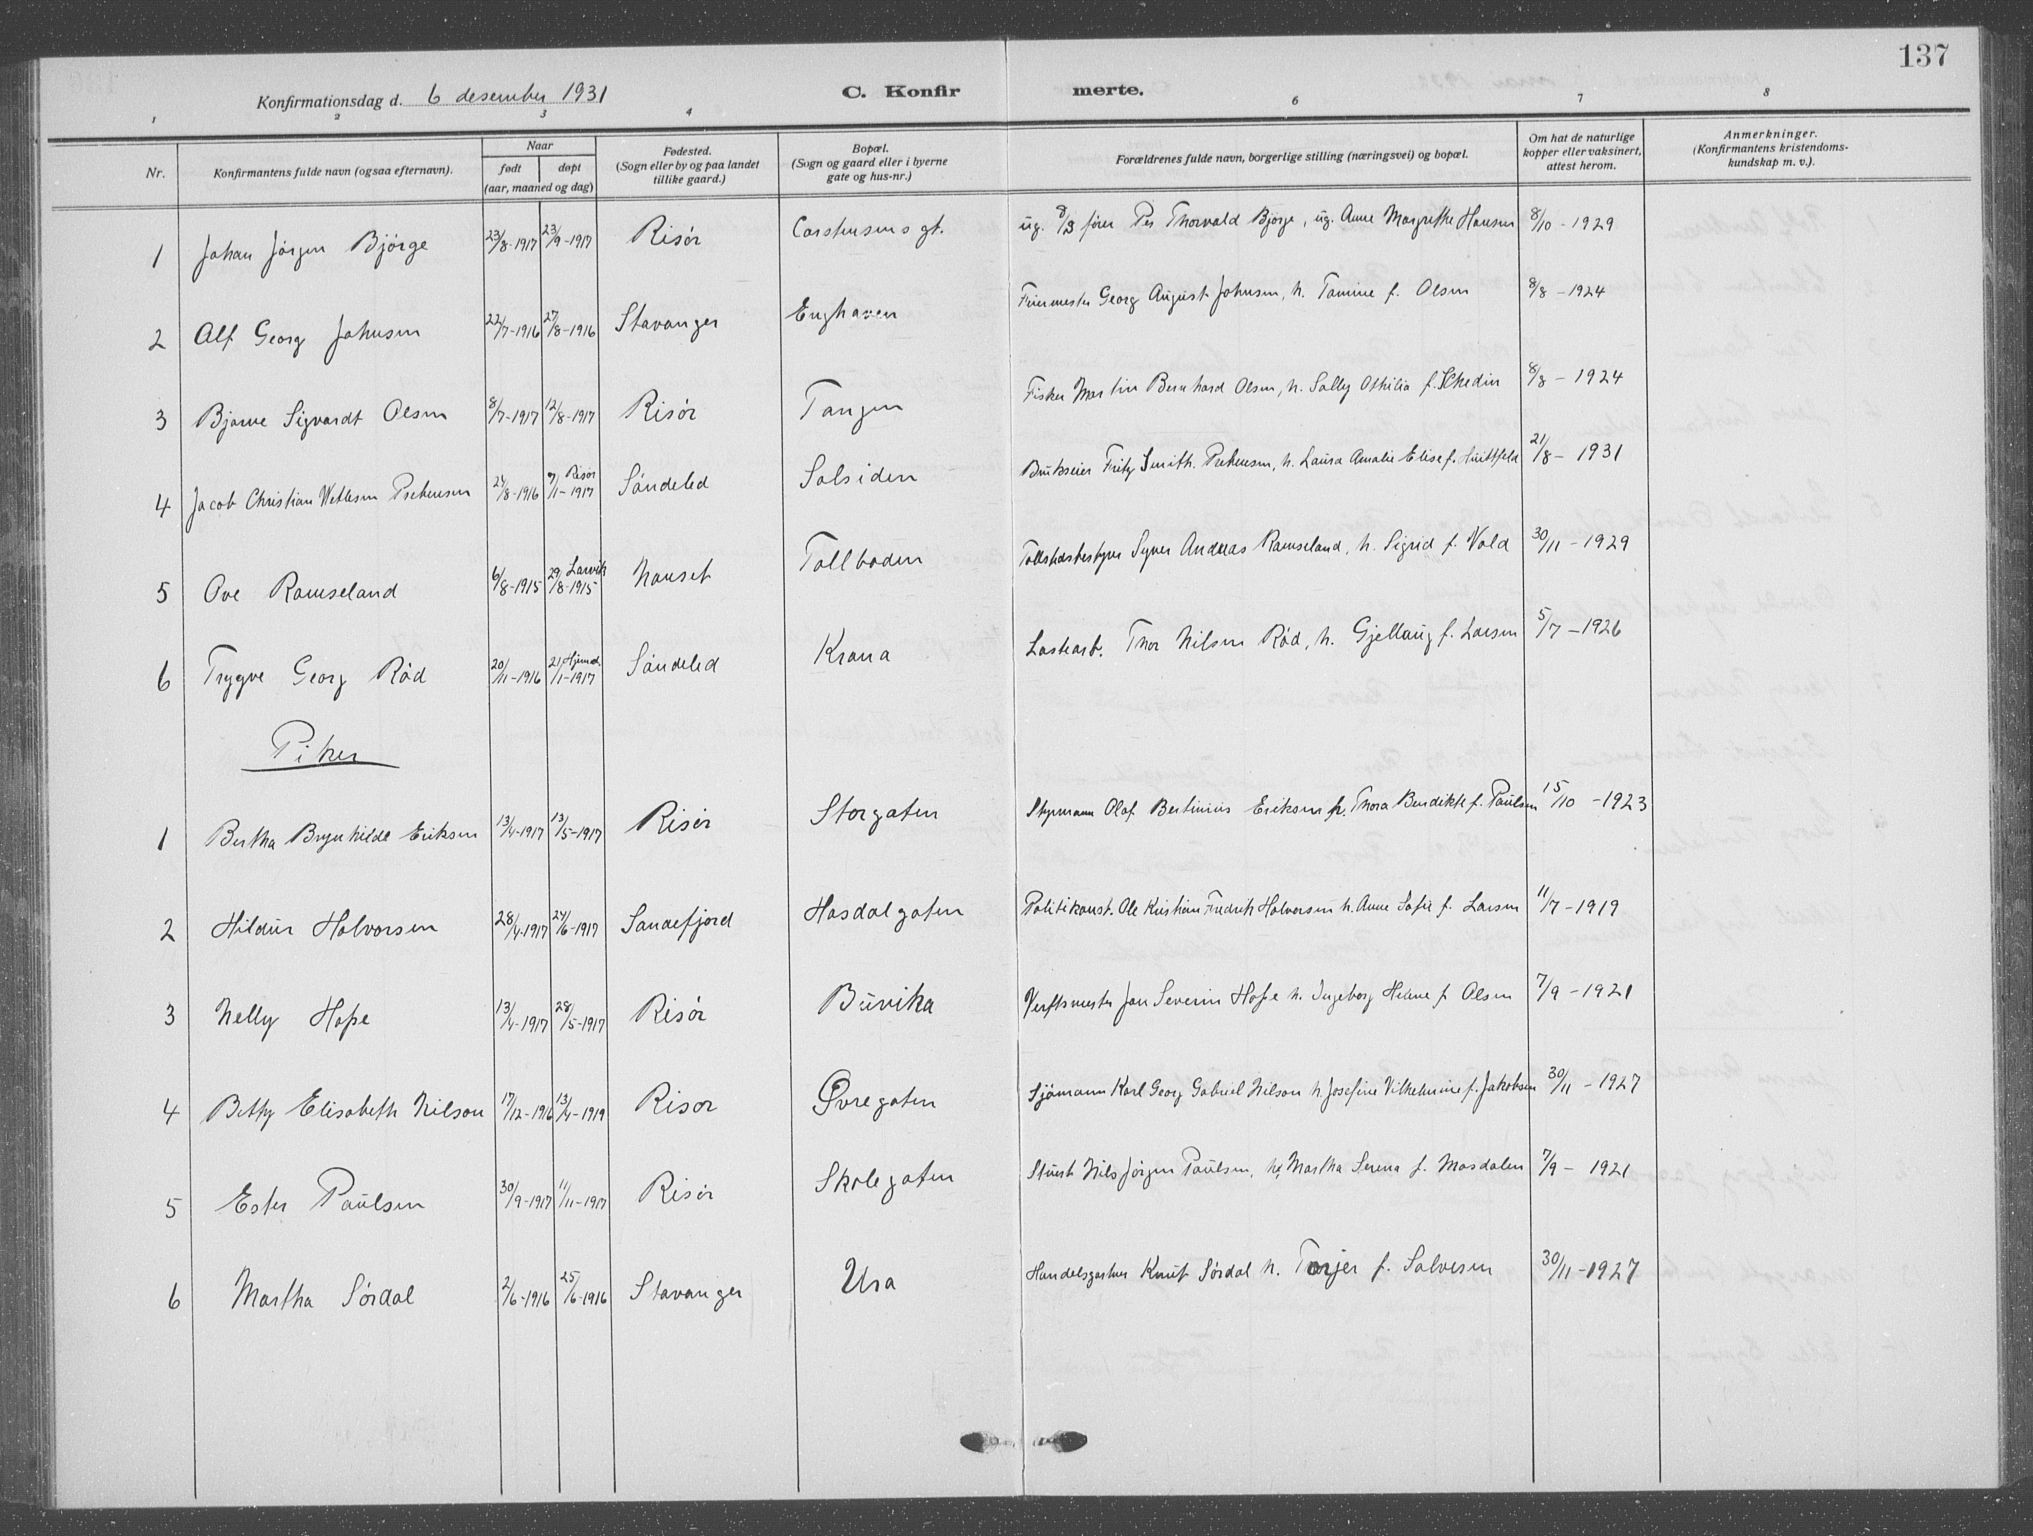 137
Konfirmationsdag d. 6 desember 1931 C. Konfirmerte.
1 2 3 4 6 7 8
Nr. Konfirmantens fulde navn (ogsaa efternavn). Naar født døpt (aar, maaned og dag) Fødested. (Sogn eller by og paa landet tillike gaard.) Bopæl. (Sogn og gaard eller i byerne gate og hus-nr.) Forældrenes fulde navn, borgerlige stilling (næringsvei) og bopæl. Om hat de naturlige kopper eller vaksinert, attest herom. Anmerkninger. (Konfirmantens kristendomskundskap m. v.).
1 Johan Jørgen Bjørge 23/8-1917 23/9-1917 Risør Carstensens gt. ug. fører Per Thorvald Bjørge, ug. Anne Margrethe Hansen 8/10-1929
2 Alf Georg Johnsen 22/7-1916 27/8-1916 Stavanger Enghaven Feiermester Georg August Johnsen, h. Tomine f. Olsen 8/8-1924
3 Bjarne Sigvardt Olsen 8/7-1917 12/8-1917 Risør Tangen Fisker Martin Bernhard Olsen, h. Solley Othilia f. Schedin 8/8-1924
4 Jacob Christian Wetlesen Prebensen 24/8-1916 Risør 7/1-1917 Søndeled Solsiden Brukseier Fritz Smith Prebensen, h. Laura Amalie Elise f. Huitfeld 21/8-1931
5 Ove Ramseland 6/8-1915 Larvik 29/8-1915 Nauset Tollboden Tollstedsbestyrer Syver Andreas Ramseland, h. Sigrid f. Vold 30/11-1929
6 Trygve Georg Rød 20/11-1916 Hjemd. 21/1-1917 Søndeled Krana Lastearb. Thor Nilsen Rød, h. Gjellaug f. Larsen 5/7-1926
Piker
1 Bertha Brynhilde Eriksen 13/4-1917 13/5-1917 Risør Storgaten Styrmann Olaf Bertinius Eriksen h. Thora Bendikte f. Paulsen 15/10-1923
2 Hildur Halvorsen 28/4-1917 24/6-1917 Sandefjord Hasdalgaten Politikonst. Ole Kristian Fredrik Halvorsen h. Anne Sofie f. Larsen 11/7-1919
3 Nelly Hope 13/4-1917 28/5-1917 Risør Buvika Verftsmester Jan Severin Hope h. Ingeborg Helene f. Olsen 7/9-1921
4 Betty Elisabeth Nilson 17/12-1916 13/4-1919 Risør Øvregaten Sjømann Karl Georg Gabriel Nilson h. Josefine Vilhelmine f. Jakobsen 30/11-1927
5 Ester Paulsen 30/9-1917 11/11-1917 Risør Skolegaten Stuert Nils Jørgen Paulsen, h. Martha Serena f. Mosdalen 7/9-1921
6 Martha Sørdal 2/6-1916 25/6-1916 Stavanger Ura Handelsgartner Knut Sørdal h. Torjer f. Salvesen 30/11-1927